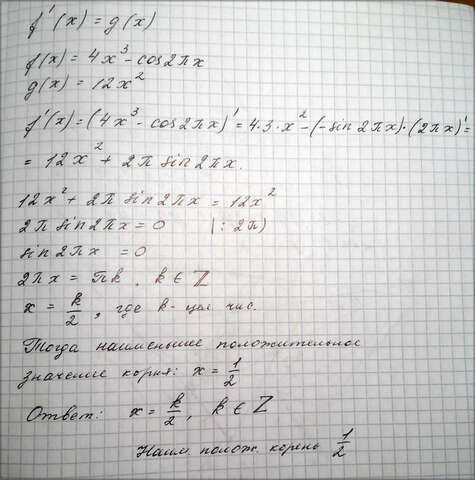 f'(x) = g(x)
f(x) = 4x³ - cos2πx
g(x) = 12x²
f'(x) = (4x³ - cos2πx)' = 4·3·x² - (-sin2πx)·(2πx)' =
= 12x² + 2π sin2πx.
12x² + 2π sin2πx = 12x²
2π sin2πx = 0 |: 2π)
sin2πx = 0
2πx = πk, k ∈ ℤ
x = k/2, где k - цел чис.
Тогда наименьшее положительное
значение корня: x = 1/2
Ответ: x = k/2, k ∈ ℤ
Наим. полож. корень 1/2